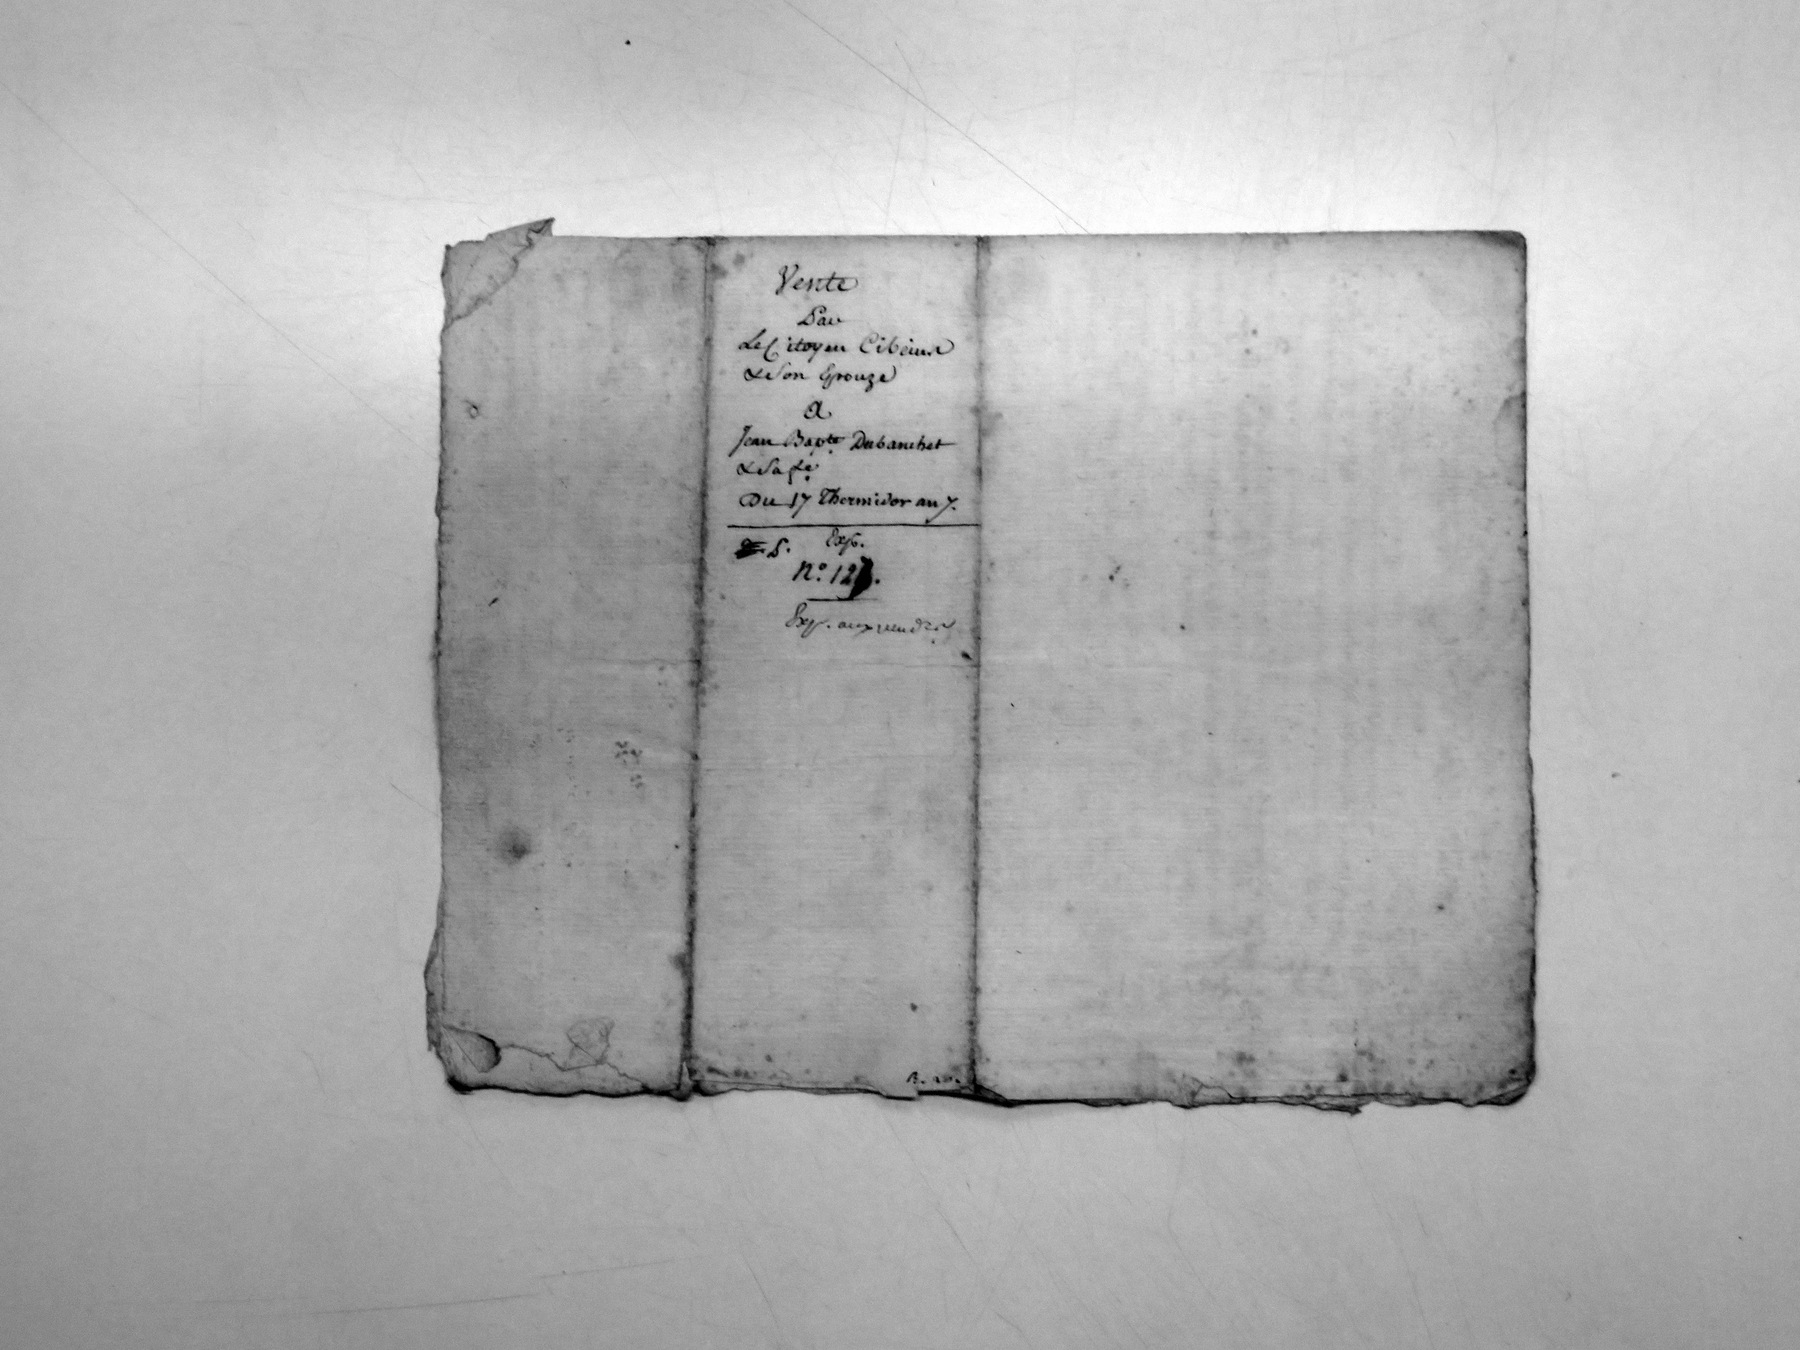 Vente
Par
Le Citoyen Cibeins
& Son Epouze
a
Jean Bapte Dubanchet
& Sa fe
Du 17 Thermidor an 7.
P. Exp.
No. 12
Exp. aux vendrs